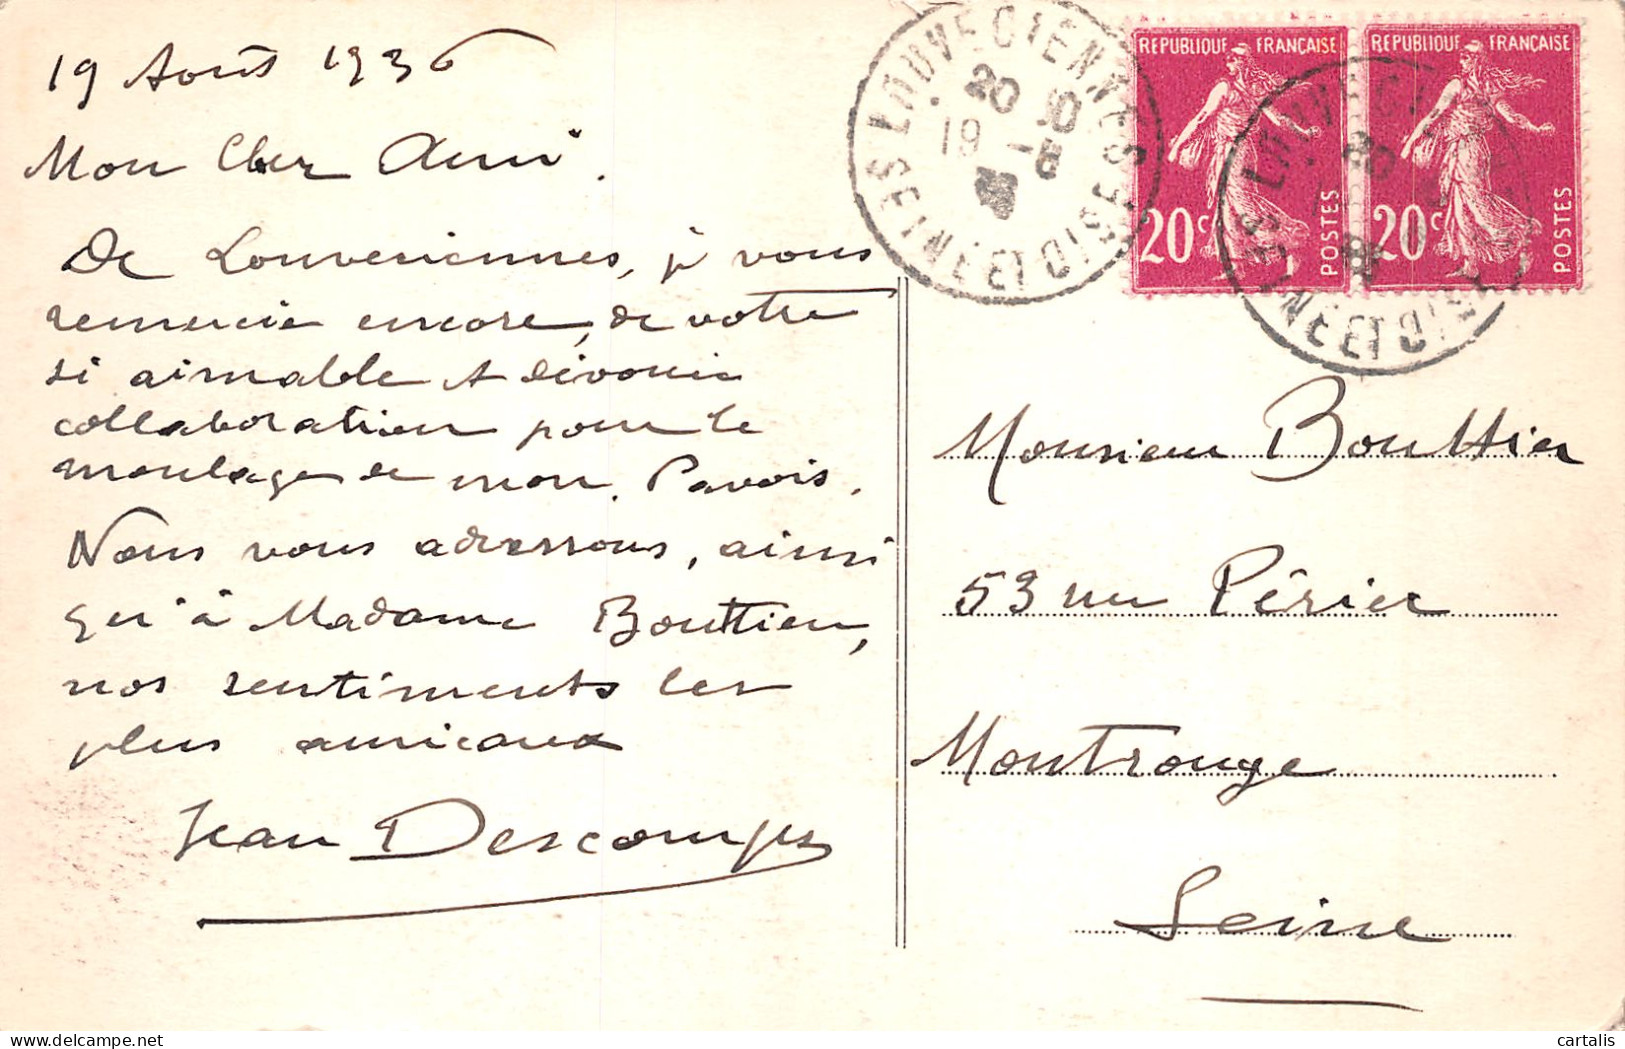 19 Août 1936
Mon Cher Ami.
De Louveciennes, je vous
remercie encore, de votre
si aimable et dévouée
collaboration pour le
moulage de mon Pavois.
Nous vous adressons, ainsi
qu'à Madame Bouttier,
nos sentiments les
plus amicaux
Jean Descomps
LOUVECIENNES
20 30
19 -8
36
SEINE ET OISE
REPUBLIQUE FRANÇAISE
20c
POSTES
REPUBLIQUE FRANÇAISE
20c
POSTES
Monsieur Bouttier
53 rue Périer
Montrouge
Seine
cartalis